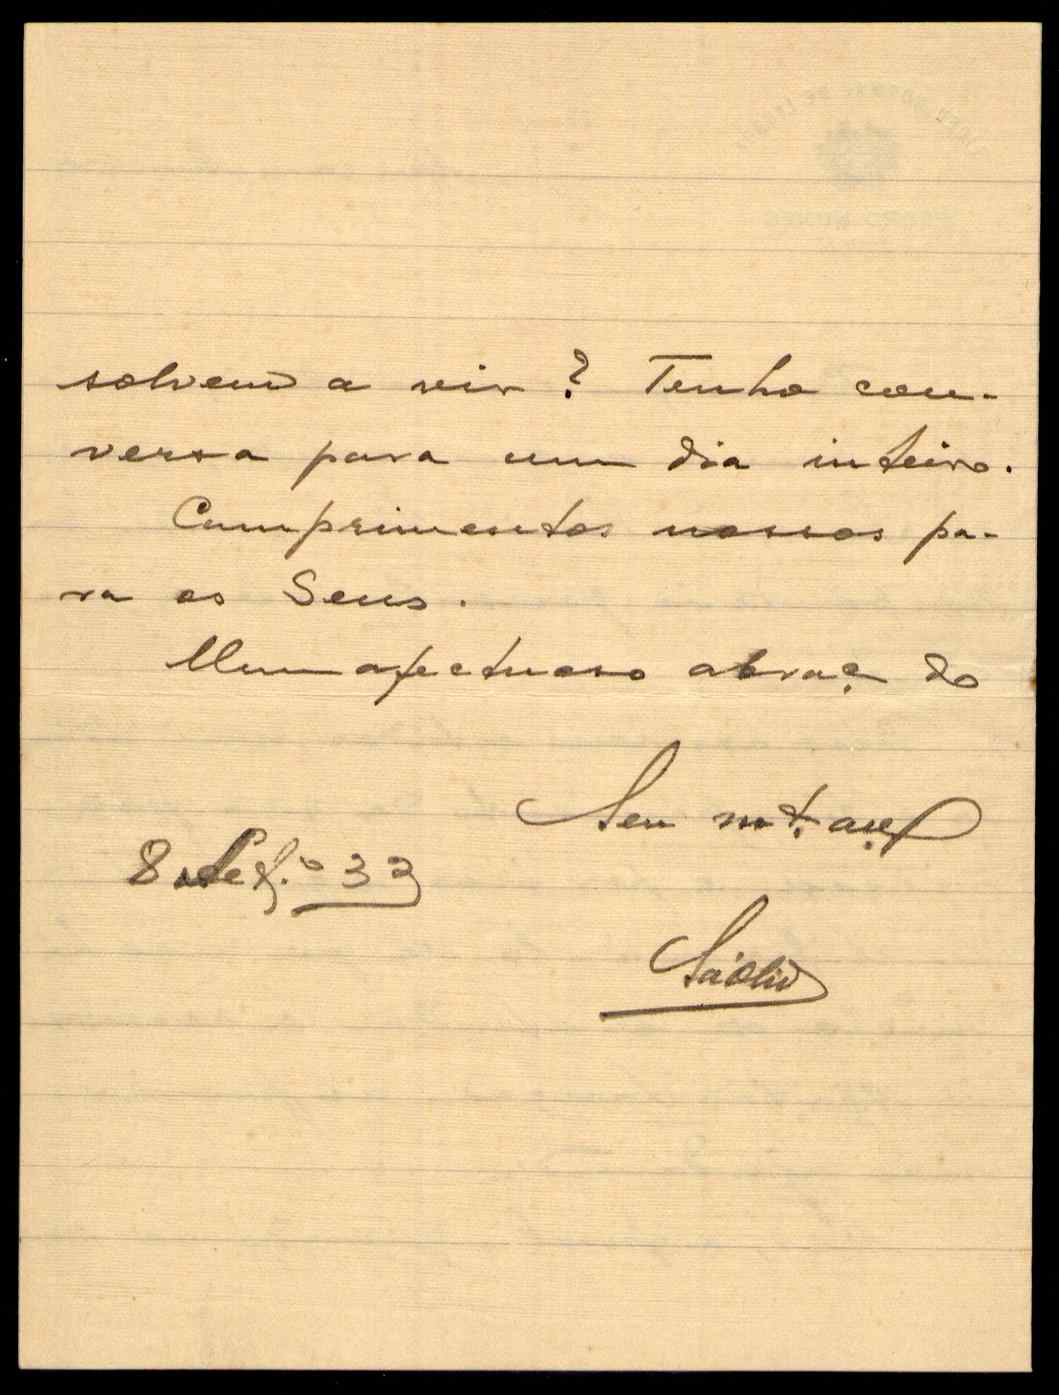 solvem a vir? Tenho con-
versa para um dia inteiro.
Cumprimentos nossos pa-
ra os Seus.
Um afectuoso abraço do
Seu mt.
8 Set.º 33